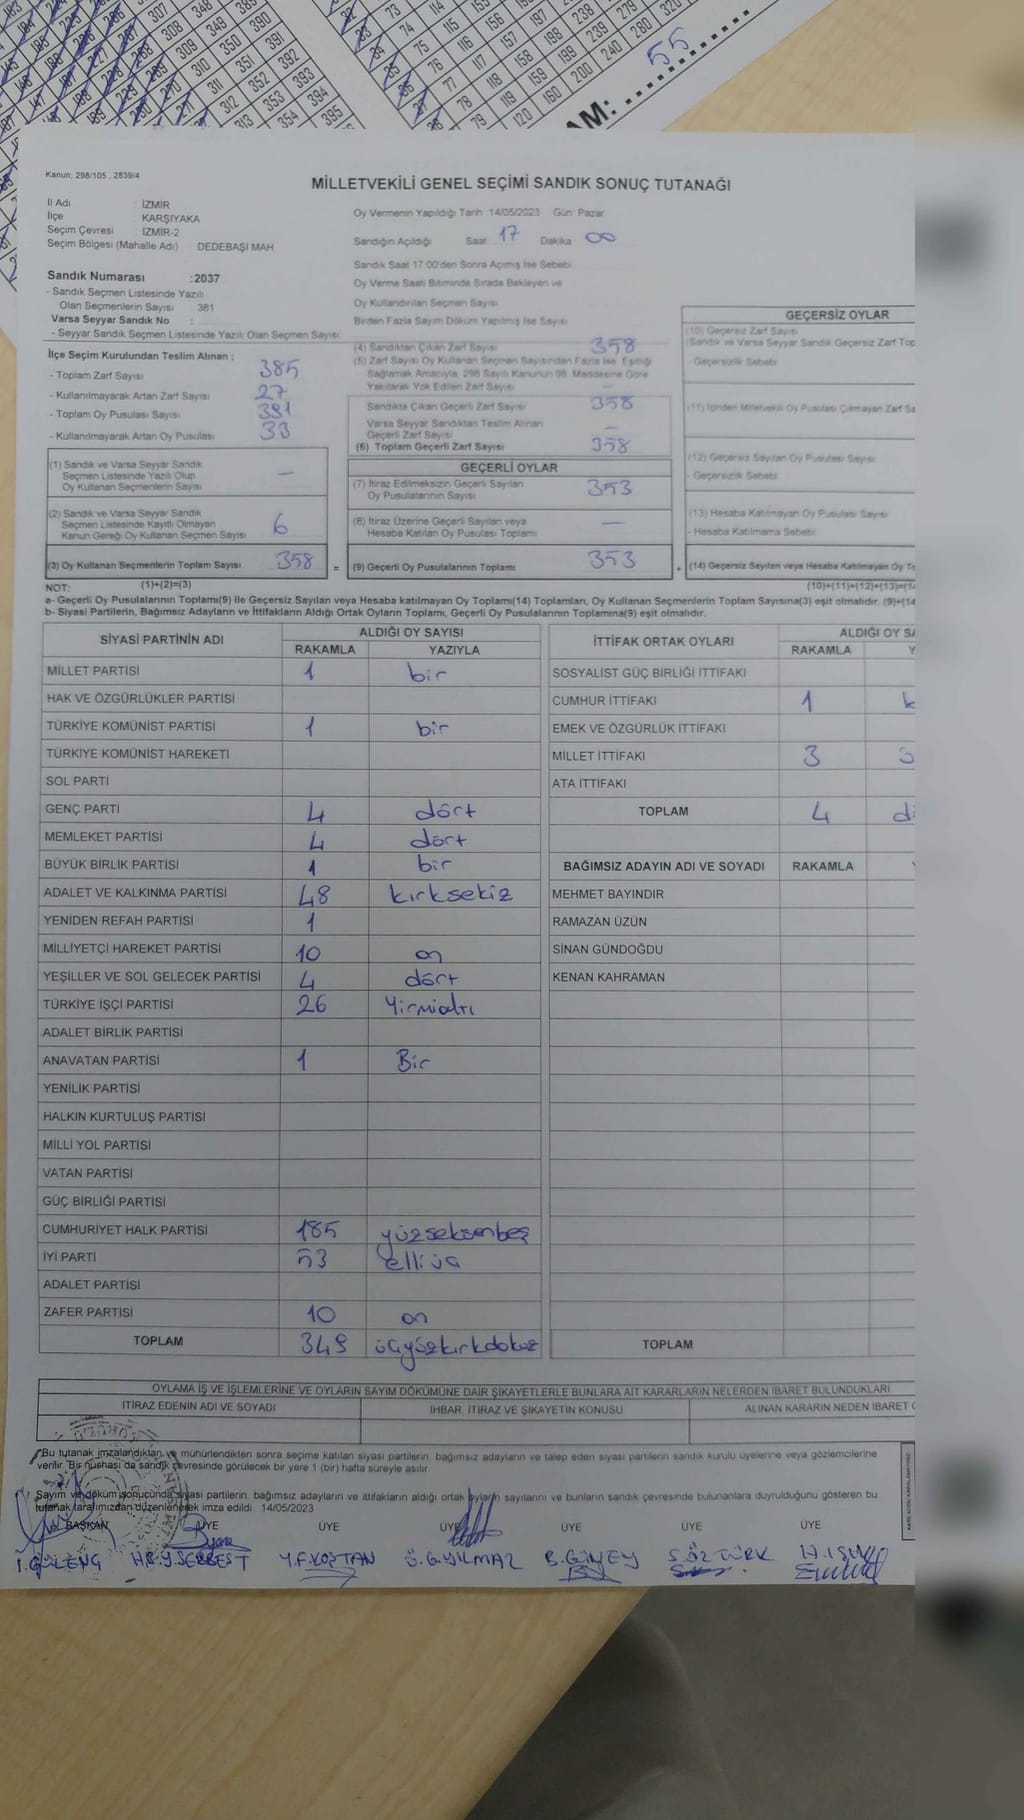 AM: 55
Kanun: 298/105 , 2839/4
MİLLETVEKİLİ GENEL SEÇİMİ SANDIK SONUÇ TUTANAĞI
İl Adı : İZMİR
İlçe : KARŞIYAKA
Seçim Çevresi : İZMİR-2
Seçim Bölgesi (Mahalle Adı) DEDEBAŞI MAH
Oy Vermenin Yapıldığı Tarih :14/05/2023 Gün: Pazar
Sandığın Açıldığı Saat 17 Dakika 00
Sandık Saat 17:00'den Sonra Açımış İse Sebebi
Oy Verme Saati Bitiminde Sırada Bekleyen ve
Oy Kullandırılan Seçmen Sayısı
Birden Fazla Sayım Döküm Yapılmış İse Sayısı
Sandık Numarası :2037
- Sandık Seçmen Listesinde Yazılı
Olan Seçmenlerin Sayısı : 381
Varsa Seyyar Sandık No :
- Seyyar Sandık Seçmen Listesinde Yazılı Olan Seçmen Sayısı
İlçe Seçim Kurulundan Teslim Alınan :
- Toplam Zarf Sayısı 385
- Kullanılmayarak Artan Zarf Sayısı 27
- Toplam Oy Pusulası Sayısı 391
- Kullanılmayarak Artan Oy Pusulası 33
(1) Sandık ve Varsa Seyyar Sandık
Seçmen Listesinde Yazılı Olup
Oy Kullanan Seçmenlerin Sayısı —
(2) Sandık ve Varsa Seyyar Sandık
Seçmen Listesinde Kayıtlı Olmayan
Kanun Gereği Oy Kullanan Seçmen Sayısı 6
(3) Oy Kullanan Seçmenlerin Toplam Sayısı 358 =
(1)+(2)=(3)
(4) Sandıktan Çıkan Zarf Sayısı 358
(5) Zarf Sayısı Oy Kullanan Seçmen Sayısından Fazla İse, Eşitliği
Sağlamak Amacıyla, 298 Sayılı Kanunun 98. Maddesine Göre
Yakılarak Yok Edilen Zarf Sayısı —
Sandıkta Çıkan Geçerli Zarf Sayısı 358
Varsa Seyyar Sandıktan Teslim Alınan
Geçerli Zarf Sayısı —
(6) Toplam Geçerli Zarf Sayısı 358
GEÇERLİ OYLAR
(7) İtiraz Edilmeksizin Geçerli Sayılan
Oy Pusulalarının Sayısı 353
(8) İtiraz Üzerine Geçerli Sayılan veya
Hesaba Katılan Oy Pusulası Toplamı —
(9) Geçerli Oy Pusulalarının Toplamı 353 +
GEÇERSİZ OYLAR
(10) Geçersiz Zarf Sayısı
(Sandık ve Varsa Seyyar Sandık Geçersiz Zarf Top
- Geçersizlik Sebebi
(11) İçinden Milletvekili Oy Pusulası Çıkmayan Zarf Sa
(12) Geçersiz Sayılan Oy Pusulası Sayısı
- Geçersizlik Sebebi
(13) Hesaba Katılmayan Oy Pusulası Sayısı
- Hesaba Katılmama Sebebi
(14) Geçersiz Sayılan veya Hesaba Katılmayan Oy To
(10)+(11)+(12)+(13)=(14
NOT:
a- Geçerli Oy Pusulalarının Toplamı(9) ile Geçersiz Sayılan veya Hesaba katılmayan Oy Toplamı(14) Toplamları, Oy Kullanan Seçmenlerin Toplam Sayısına(3) eşit olmalıdır. (9)+(14
b- Siyasi Partilerin, Bağımsız Adayların ve İttifakların Aldığı Ortak Oyların Toplamı, Geçerli Oy Pusulalarının Toplamına(9) eşit olmalıdır.
SİYASİ PARTİNİN ADI ALDIĞI OY SAYISI
RAKAMLA YAZIYLA
MİLLET PARTİSİ 1 bir
HAK VE ÖZGÜRLÜKLER PARTİSİ
TÜRKİYE KOMÜNİST PARTİSİ 1 bir
TÜRKİYE KOMÜNİST HAREKETİ
SOL PARTİ
GENÇ PARTİ 4 dört
MEMLEKET PARTİSİ 4 dört
BÜYÜK BİRLİK PARTİSİ 1 bir
ADALET VE KALKINMA PARTİSİ 48 kırksekiz
YENİDEN REFAH PARTİSİ 1
MİLLİYETÇİ HAREKET PARTİSİ 10 on
YEŞİLLER VE SOL GELECEK PARTİSİ 4 dört
TÜRKİYE İŞÇİ PARTİSİ 26 Yirmialtı
ADALET BİRLİK PARTİSİ
ANAVATAN PARTİSİ 1 Bir
YENİLİK PARTİSİ
HALKIN KURTULUŞ PARTİSİ
MİLLİ YOL PARTİSİ
VATAN PARTİSİ
GÜÇ BİRLİĞİ PARTİSİ
CUMHURİYET HALK PARTİSİ 185 yüzseksenbeş
İYİ PARTİ 53 elliüç
ADALET PARTİSİ
ZAFER PARTİSİ 10 on
TOPLAM 349 üçyüzkırkdokuz
İTTİFAK ORTAK OYLARI ALDIĞI OY SA
RAKAMLA Y
SOSYALİST GÜÇ BİRLİĞİ İTTİFAKI
CUMHUR İTTİFAKI 1 b
EMEK VE ÖZGÜRLÜK İTTİFAKI
MİLLET İTTİFAKI 3
ATA İTTİFAKI
TOPLAM 4 dö
BAĞIMSIZ ADAYIN ADI VE SOYADI RAKAMLA Y
MEHMET BAYINDIR
RAMAZAN ÜZÜN
SİNAN GÜNDOĞDU
KENAN KAHRAMAN
TOPLAM
OYLAMA İŞ VE İŞLEMLERİNE VE OYLARIN SAYIM DÖKÜMÜNE DAİR ŞİKAYETLERLE BUNLARA AİT KARARLARIN NELERDEN İBARET BULUNDUKLARI
İTİRAZ EDENİN ADI VE SOYADI İHBAR, İTİRAZ VE ŞİKAYETİN KONUSU ALINAN KARARIN NEDEN İBARET O
Bu tutanak imzalandıktan ve mühürlendikten sonra seçime katılan siyasi partilerin, bağımsız adayların ve talep eden siyasi partilerin sandık kurulu üyelerine veya gözlemcilerine
verilir. Bir nüshası da sandık çevresinde görülecek bir yere 1 (bir) hafta süreyle asılır.
Sayım ve döküm sonucunda siyasi partilerin, bağımsız adayların ve ittifakların aldığı ortak oyların sayılarını ve bunların sandık çevresinde bulunanlara duyrulduğunu gösteren bu
tutanak tarafımızdan düzenlenerek imza edildi. 14/05/2023
BAŞKAN ÜYE ÜYE ÜYE ÜYE ÜYE ÜYE
İ.GÜLENÇ Y.F.KOŞTAN Ö.G.YILMAZ B.GÜNEY S.ÖZTÜRK H.IŞIK